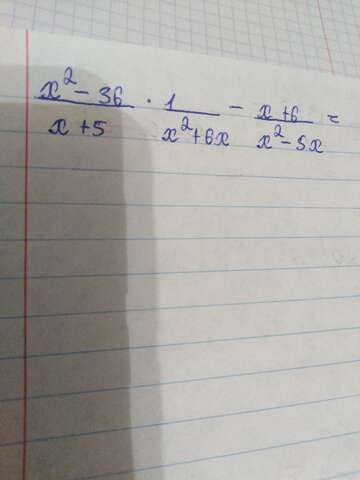 (x² - 36)/(x + 5) · 1/(x² + 6x) - (x + 6)/(x² - 5x) =